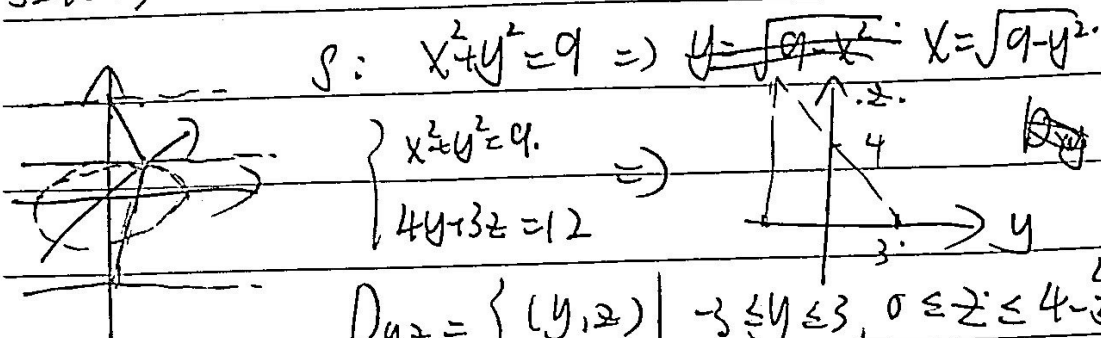 S: x²+y²=9 => y=√(9-x²) x=√(9-y²).
z.
x²+y²=9.
=>
4
4y+3z=12
y
3
Dyz = { (y,z) | -3≤y≤3, 0≤z≤4-